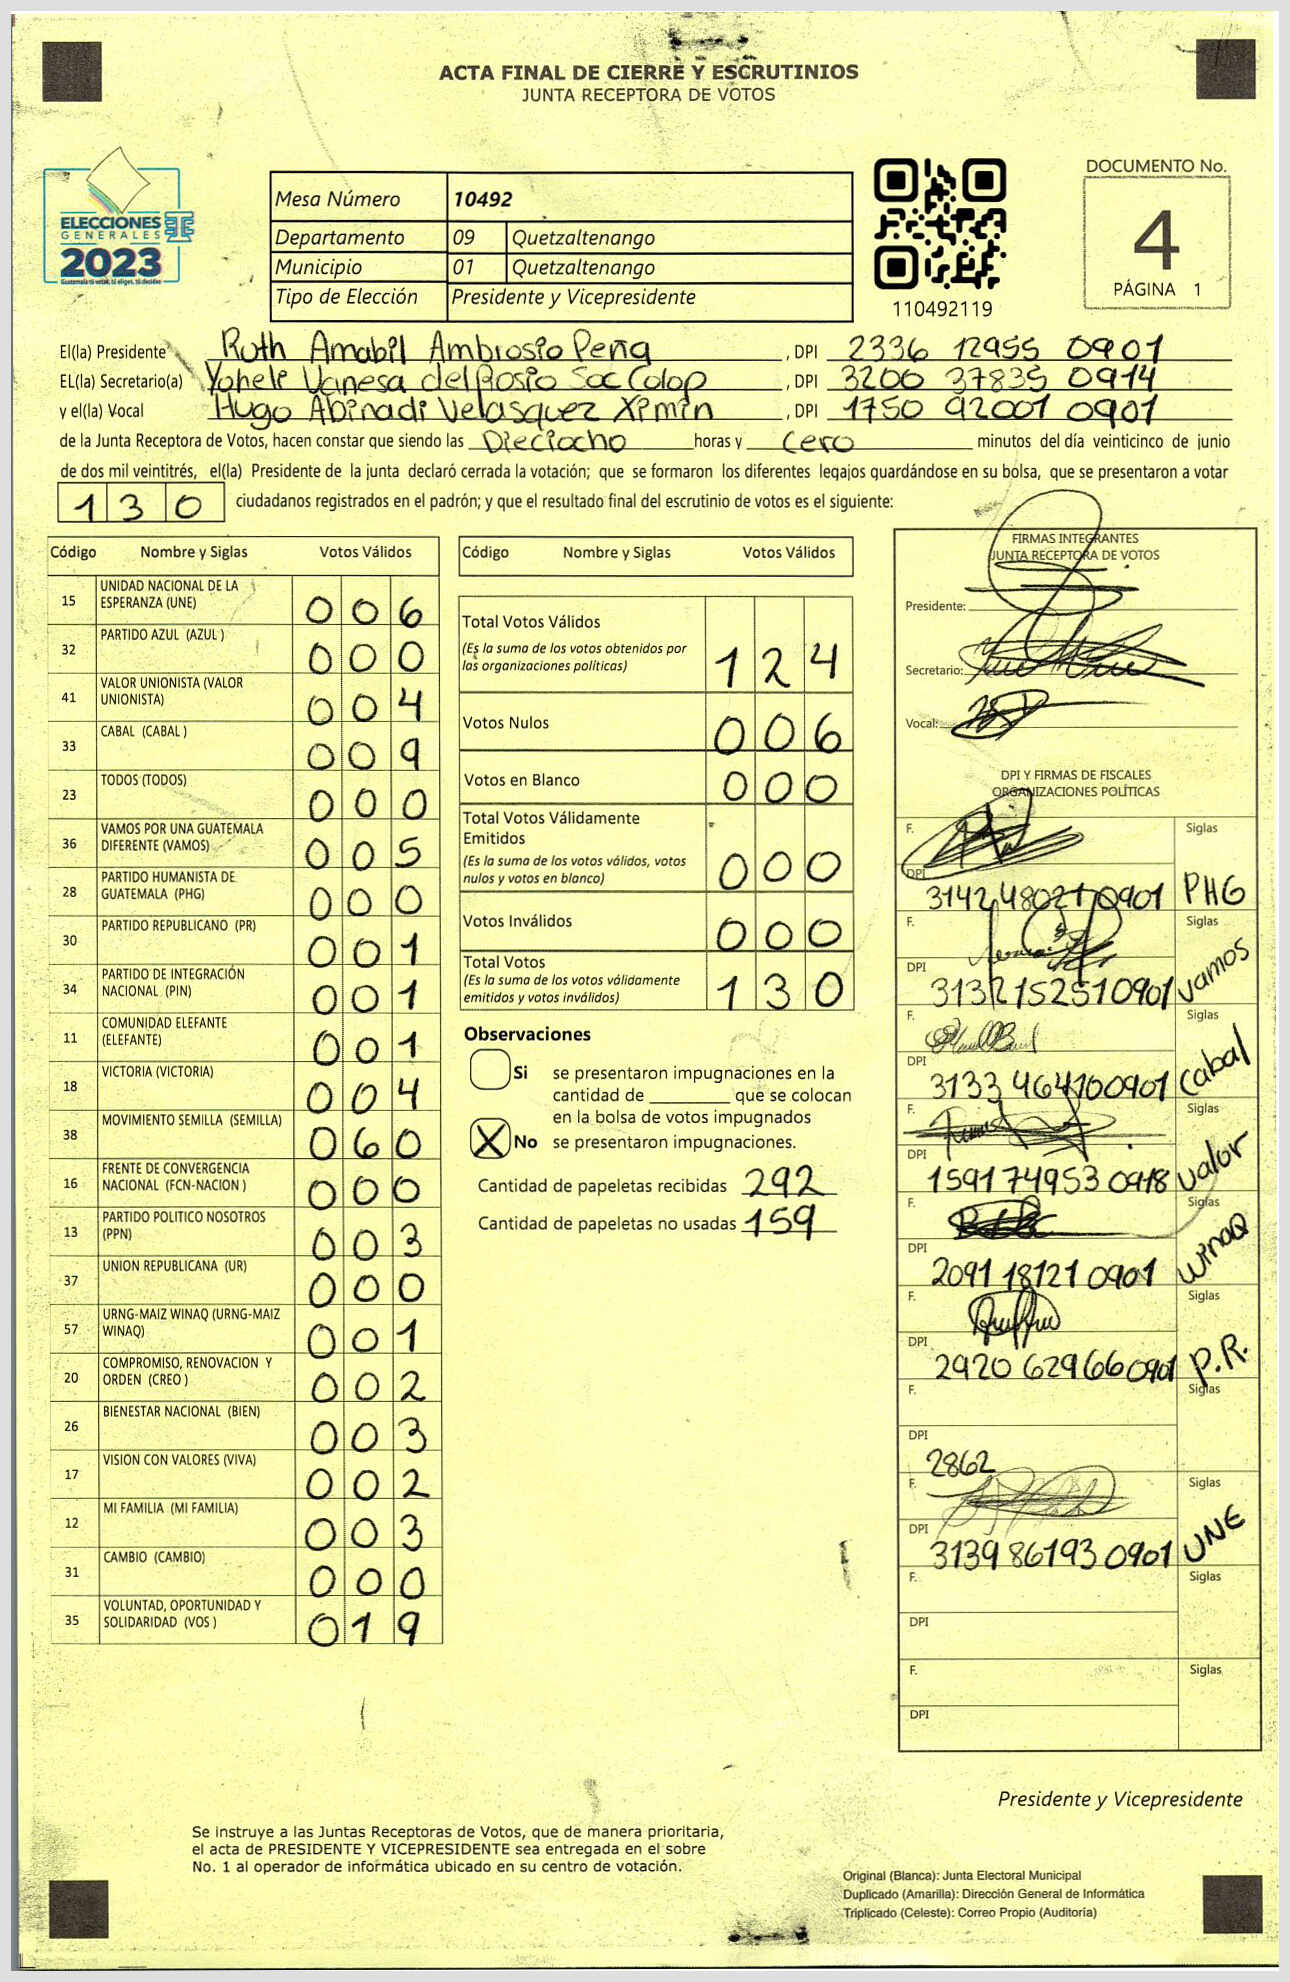 ACTA FINAL DE CIERRE Y ESCRUTINIOS
JUNTA RECEPTORA DE VOTOS
ELECCIONES
GENERALES
2023
Guatemala tú votas, tú eliges, tú decides
Mesa Número 10492
Departamento 09 Quetzaltenango
Municipio 01 Quetzaltenango
Tipo de Elección Presidente y Vicepresidente
110492119
DOCUMENTO No.
4
PÁGINA 1
El(la) Presidente Ruth Amabil Ambrosio Peña , DPI 2336 12955 0901
EL(la) Secretario(a) Yohele Vanesa del Rosio Soc Colop , DPI 3200 37835 0914
y el(la) Vocal Hugo Abinadi Velasquez Ximin , DPI 1750 92001 0901
de la Junta Receptora de Votos, hacen constar que siendo las Dieciocho horas y cero minutos del día veinticinco de junio
de dos mil veintitrés, el(la) Presidente de la junta declaró cerrada la votación; que se formaron los diferentes legajos guardándose en su bolsa, que se presentaron a votar
130 ciudadanos registrados en el padrón; y que el resultado final del escrutinio de votos es el siguiente:
Código Nombre y Siglas Votos Válidos
15 UNIDAD NACIONAL DE LA ESPERANZA (UNE) 006
32 PARTIDO AZUL (AZUL ) 000
41 VALOR UNIONISTA (VALOR UNIONISTA) 004
33 CABAL (CABAL ) 009
23 TODOS (TODOS) 000
36 VAMOS POR UNA GUATEMALA DIFERENTE (VAMOS) 005
28 PARTIDO HUMANISTA DE GUATEMALA (PHG) 000
30 PARTIDO REPUBLICANO (PR) 001
34 PARTIDO DE INTEGRACIÓN NACIONAL (PIN) 001
11 COMUNIDAD ELEFANTE (ELEFANTE) 001
18 VICTORIA (VICTORIA) 004
38 MOVIMIENTO SEMILLA (SEMILLA) 060
16 FRENTE DE CONVERGENCIA NACIONAL (FCN-NACION ) 000
13 PARTIDO POLITICO NOSOTROS (PPN) 003
37 UNION REPUBLICANA (UR) 000
57 URNG-MAIZ WINAQ (URNG-MAIZ WINAQ) 001
20 COMPROMISO, RENOVACION Y ORDEN (CREO ) 002
26 BIENESTAR NACIONAL (BIEN) 003
17 VISION CON VALORES (VIVA) 002
12 MI FAMILIA (MI FAMILIA) 003
31 CAMBIO (CAMBIO) 000
35 VOLUNTAD, OPORTUNIDAD Y SOLIDARIDAD (VOS ) 019
Código Nombre y Siglas Votos Válidos
Total Votos Válidos 124
(Es la suma de los votos obtenidos por
las organizaciones políticas)
Votos Nulos 006
Votos en Blanco 000
Total Votos Válidamente
Emitidos 000
(Es la suma de los votos válidos, votos
nulos y votos en blanco)
Votos Inválidos 000
Total Votos 130
(Es la suma de los votos válidamente
emitidos y votos inválidos)
Observaciones
Si se presentaron impugnaciones en la
cantidad de ________ que se colocan
en la bolsa de votos impugnados
X No se presentaron impugnaciones.
Cantidad de papeletas recibidas 292
Cantidad de papeletas no usadas 159
FIRMAS INTEGRANTES
JUNTA RECEPTORA DE VOTOS
Presidente:
Secretario:
Vocal:
DPI Y FIRMAS DE FISCALES
ORGANIZACIONES POLÍTICAS
F. Siglas
DPI 3142480210901 PHG
F. Siglas
DPI 3132152510901 vamos
F. Siglas
DPI 3133 464100901 cabal
F. Siglas
DPI 1591 74953 0918 valor
F. Siglas
DPI 2091 18121 0901 winaq
F. Siglas
DPI 2920 62966 0901 P.R.
F. Siglas
DPI 2862
F. Siglas
DPI 3139 86193 0901 UNE
F. Siglas
DPI
F. Siglas
DPI
Presidente y Vicepresidente
Se instruye a las Juntas Receptoras de Votos, que de manera prioritaria,
el acta de PRESIDENTE Y VICEPRESIDENTE sea entregada en el sobre
No. 1 al operador de informática ubicado en su centro de votación.
Original (Blanca): Junta Electoral Municipal
Duplicado (Amarilla): Dirección General de Informática
Triplicado (Celeste): Correo Propio (Auditoría)